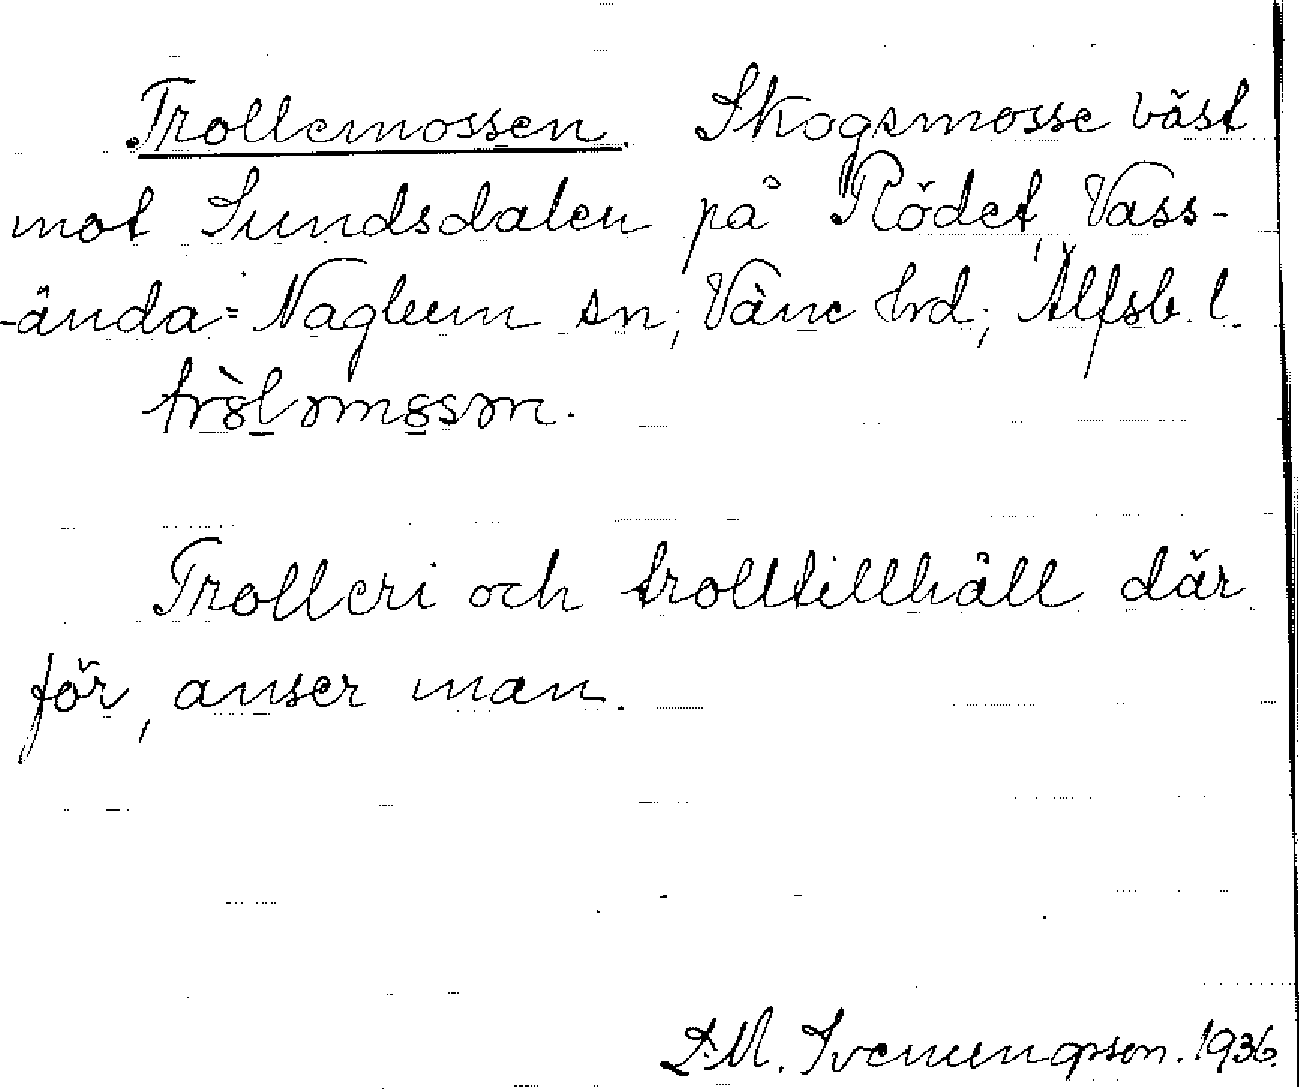 Trollemossen. Skogsmosse väst
mot Sundsdalen på Rödet, Vass-
-ända-Naglum sn; Väne hrd; Älfsb. l.
Trolleri och trolltillhåll där
för, anser man.
D.M. Svenungsson. 1936.